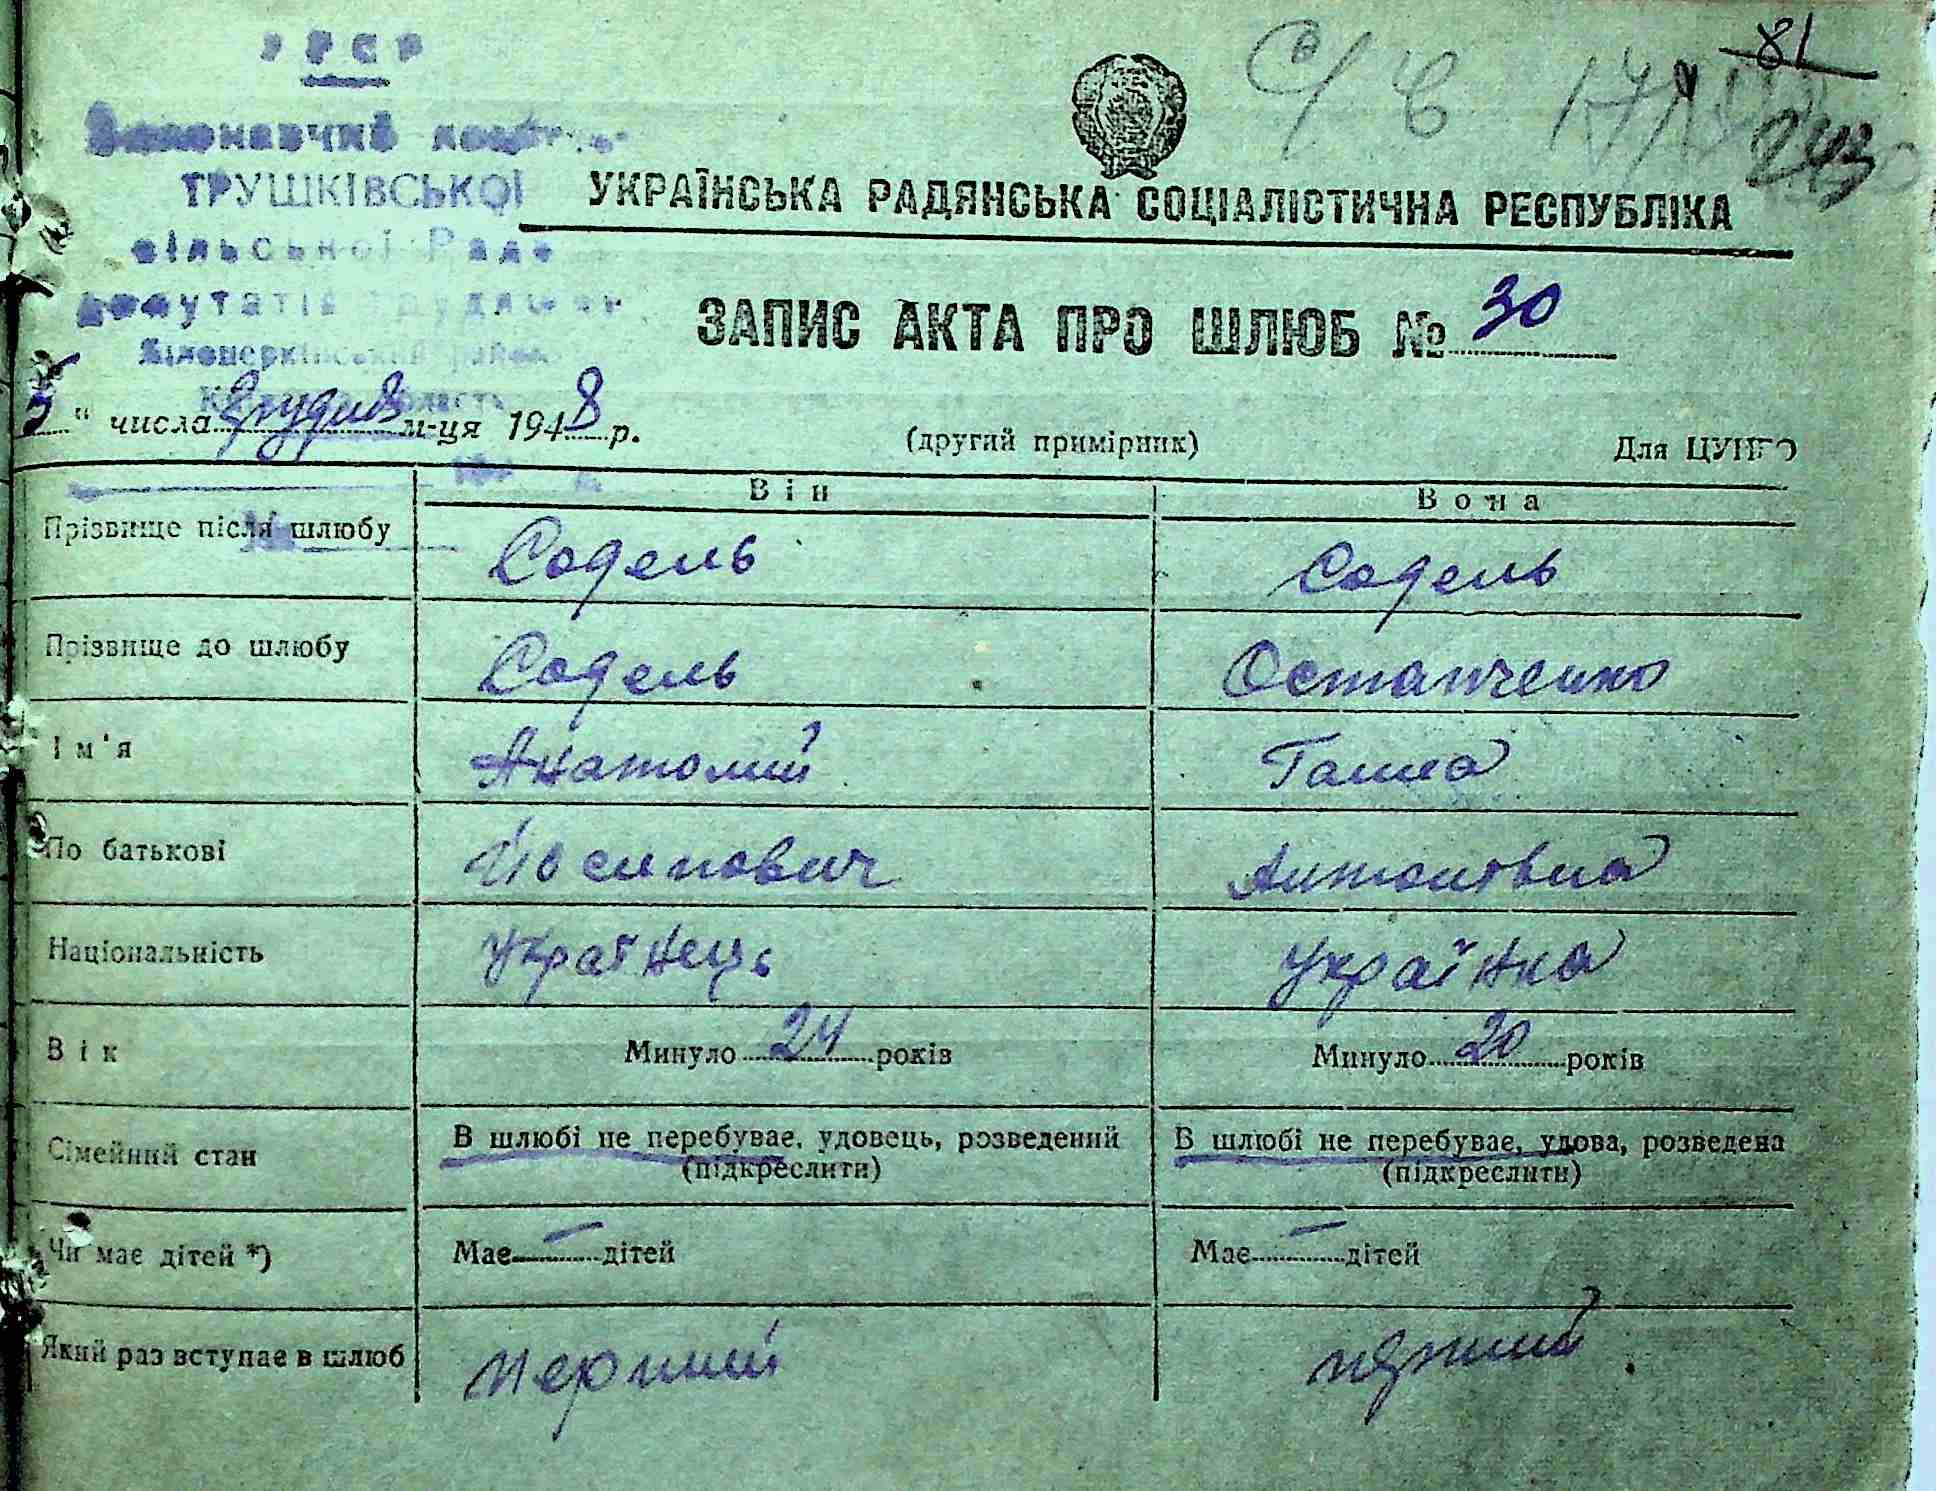 УРСР
Виконавчий комітет
ТРУШКІВСЬКОЇ
сільської Ради
депутатів трудящих
Білоцерківський район
область
81
с/с 17
243
УКРАЇНСЬКА РАДЯНСЬКА СОЦІАЛІСТИЧНА РЕСПУБЛІКА
ЗАПИС АКТА ПРО ШЛЮБ № 30
5 " числа грудня м-ця 1948 р. (другий примірник) Для ЦУНГО
Він Вона
Прізвище після шлюбу Содель Содель
Прізвище до шлюбу Содель Остапченко
Ім'я Анатолий Ганна
По батькові Йосипович Антоновна
Національність Українець Українка
Вік Минуло 24 років Минуло 20 років
Сімейний стан В шлюбі не перебуває, удовець, розведений В шлюбі не перебуває, удова, розведена
(підкреслити) (підкреслити)
Чи має дітей *) Має — дітей Має — дітей
Який раз вступає в шлюб перший перший